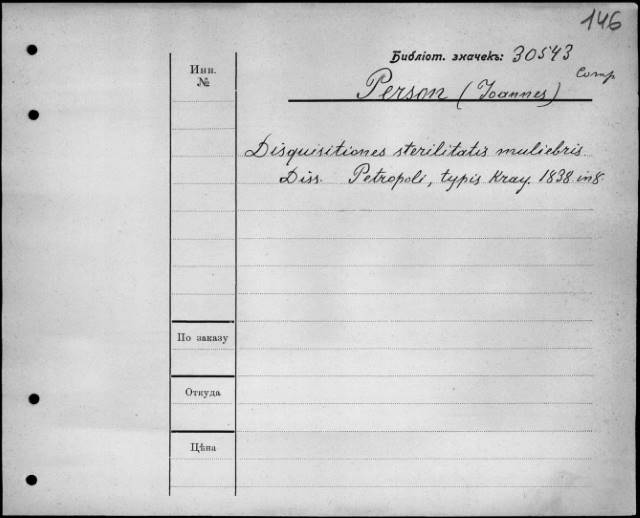 146
Библіот. значекъ: 30543
Comp
Person (Joannes)
Инв.
№
Disquisitiones sterilitatis muliebris.
Diss. Petropoli, typis Kray. 1838. in 8.
По заказу
Откуда
Цѣна